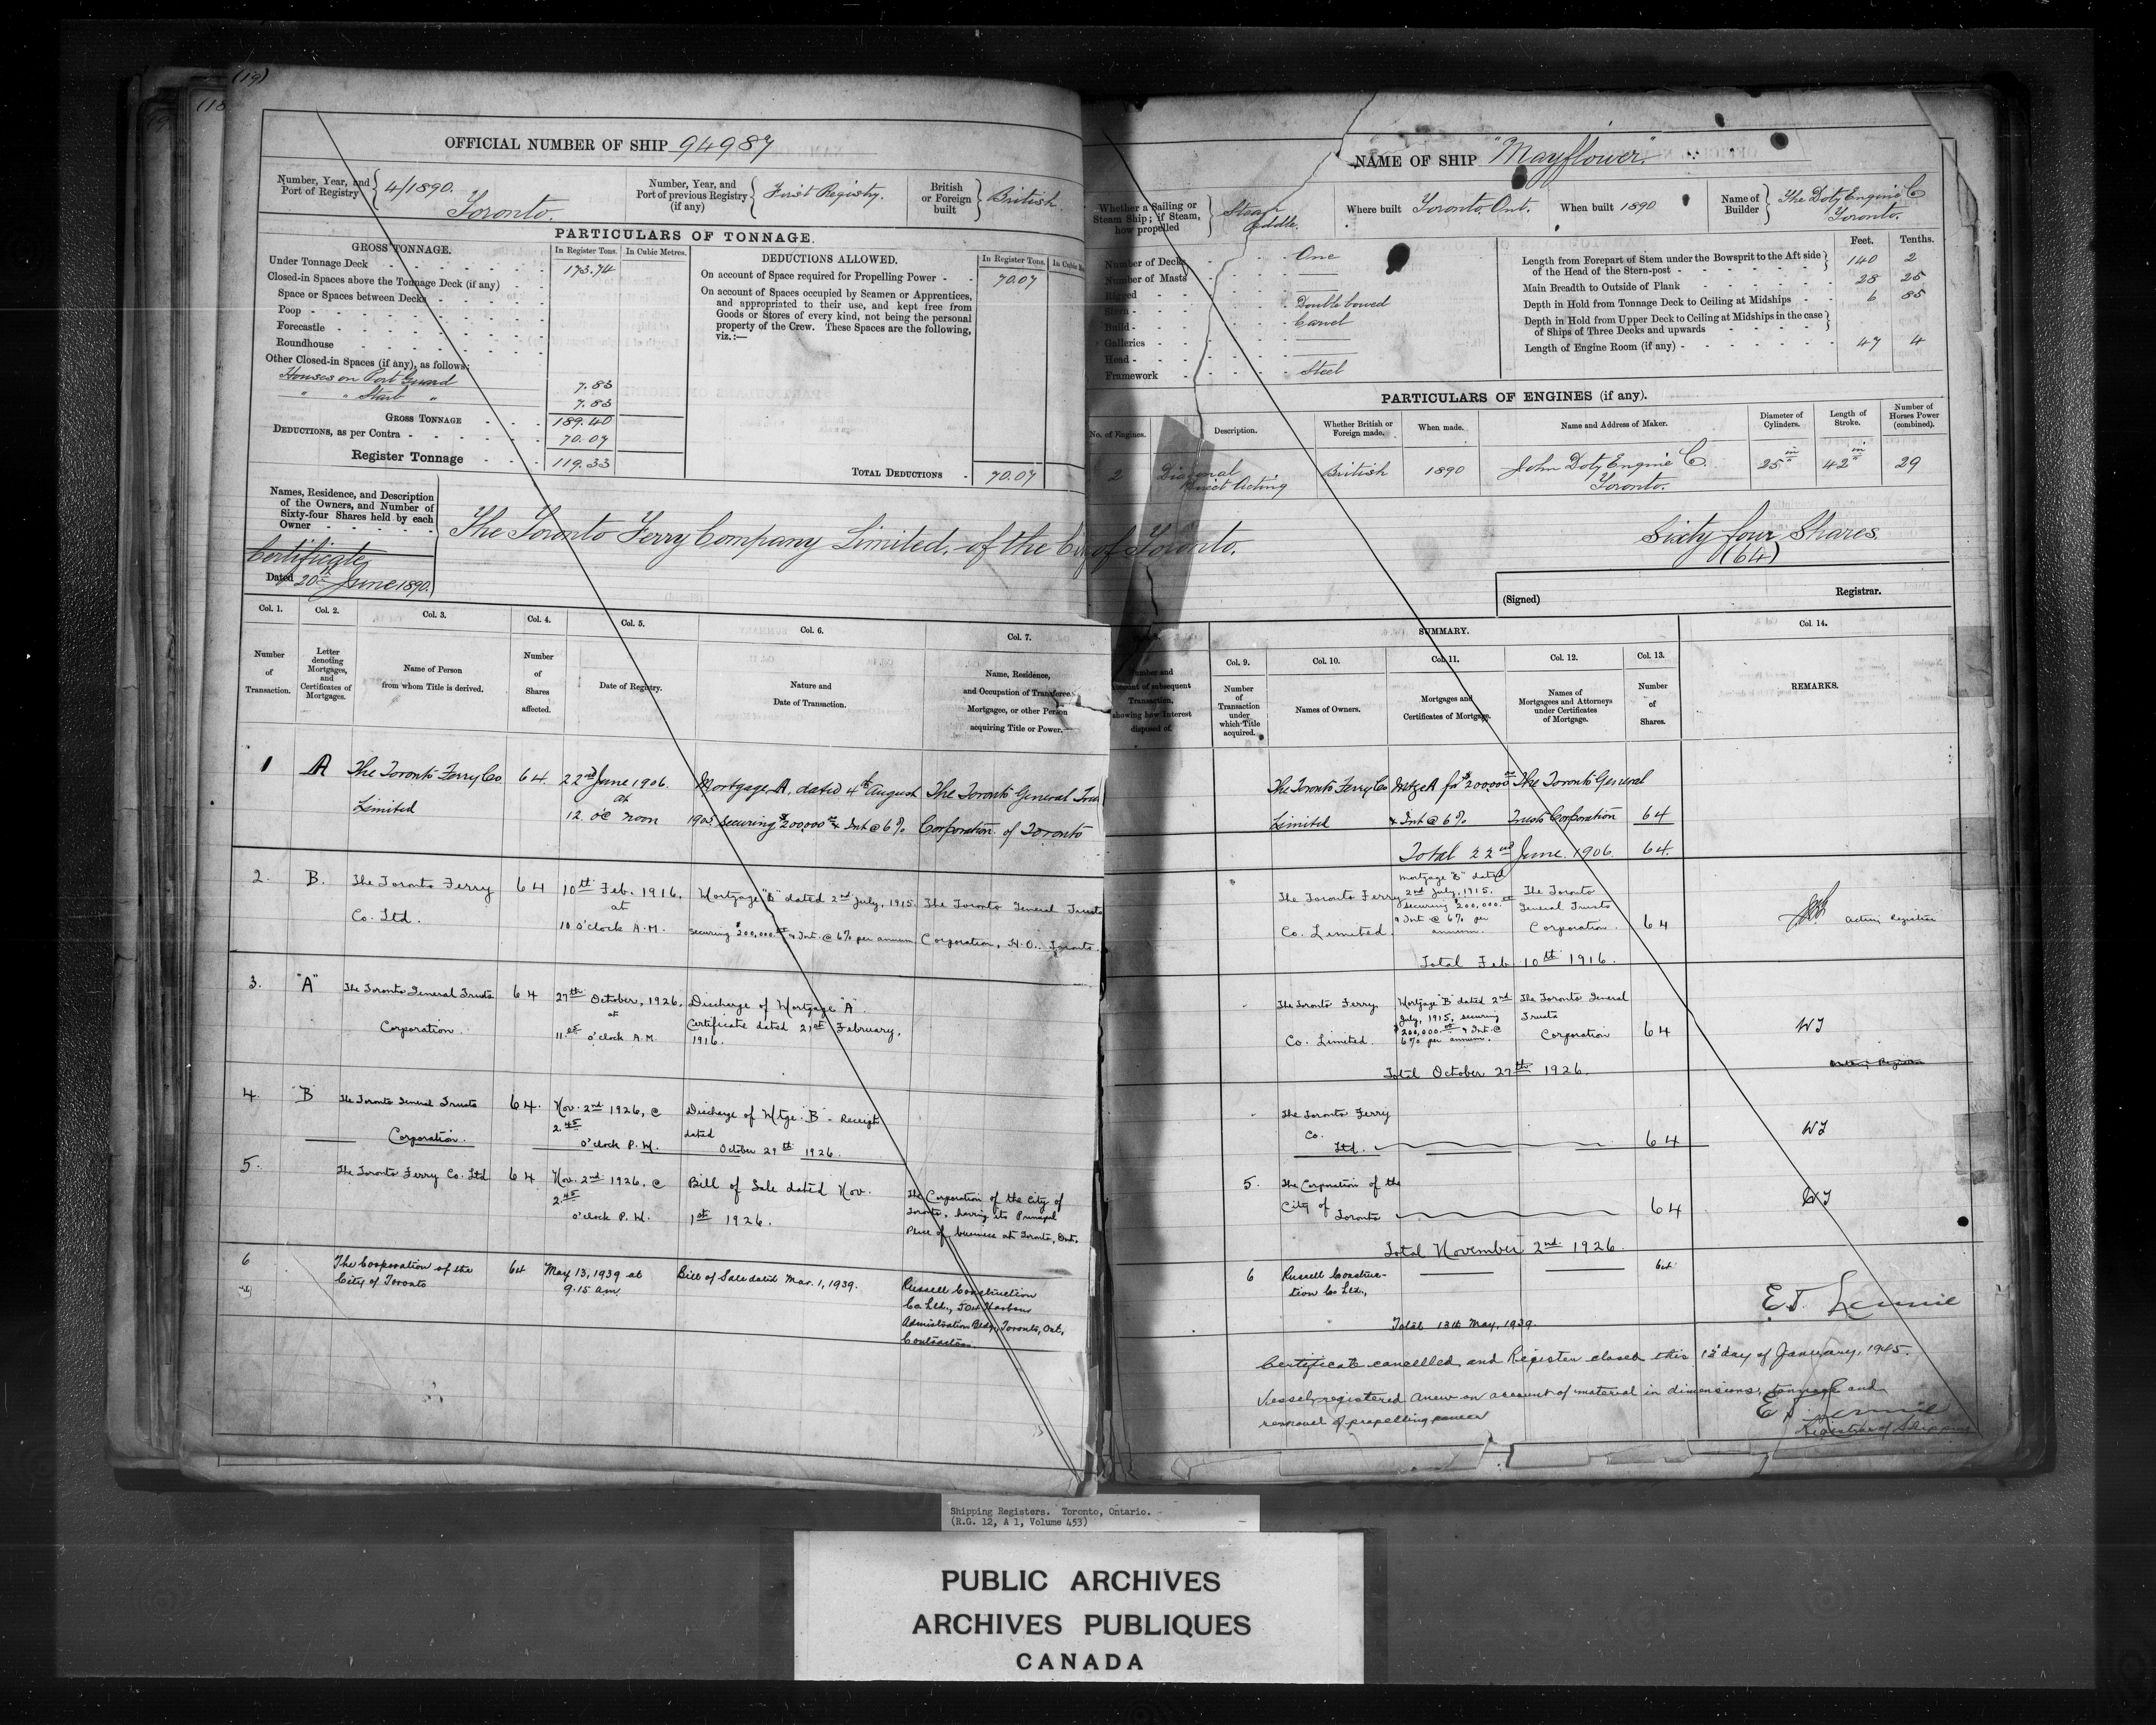 (19)
(18
OFFICIAL NUMBER OF SHIP 94987
Number, Year, and Port of Registry 4/1890. Toronto.
Number, Year, and Port of previous Registry (if any) First Registry.
British or Foreign built British
PARTICULARS OF TONNAGE.
GROSS TONNAGE. In Register Tons. In Cubic Metres.
Under Tonnage Deck 173.74
Closed-in Spaces above the Tonnage Deck (if any)
Space or Spaces between Decks
Poop
Forecastle
Roundhouse
Other Closed-in Spaces (if any), as follows:
Houses on Port Guard 7.83
" " Starb " 7.83
GROSS TONNAGE 189.40
DEDUCTIONS, as per Contra 70.07
Register Tonnage 119.33
DEDUCTIONS ALLOWED. In Register Tons.
On account of Space required for Propelling Power 70.07
On account of Spaces occupied by Seamen or Apprentices,
and appropriated to their use, and kept free from
Goods or Stores of every kind, not being the personal
property of the Crew. These Spaces are the following,
viz.:—
TOTAL DEDUCTIONS 70.07
Names, Residence, and Description
of the Owners, and Number of
Sixty-four Shares held by each
Owner
Certificate
Dated 20th June 1890.
The Toronto Ferry Company Limited, of the City of Toronto.
NAME OF SHIP "Mayflower"
Whether a Sailing or Steam Ship; if Steam, how propelled Steam Paddle.
Where built Toronto, Ont.
When built 1890
Name of Builder The Doty Engine Co Toronto.
Number of Decks One
Number of Masts
Rigged
Stern Double bowed
Build Carvel
Galleries
Head
Framework Steel
Feet. Tenths.
Length from Forepart of Stem under the Bowsprit to the Aft side of the Head of the Stern-post 140 2
Main Breadth to Outside of Plank 28 25
Depth in Hold from Tonnage Deck to Ceiling at Midships 6 85
Depth in Hold from Upper Deck to Ceiling at Midships in the case of Ships of Three Decks and upwards
Length of Engine Room (if any) 47 4
PARTICULARS OF ENGINES (if any).
No. of Engines. Description. Whether British or Foreign made. When made. Name and Address of Maker. Diameter of Cylinders. Length of Stroke. Number of Horses Power (combined).
2 Diagonal Direct Acting British 1890 John Doty Engine Co. Toronto. 25 in 42 in 29
Sixty four Shares.
(64)
(Signed) Registrar.
Col. 1. Col. 2. Col. 3. Col. 4. Col. 5. Col. 6. Col. 7.
Number of Transaction.
Letter denoting Mortgages, and Certificates of Mortgages.
Name of Person from whom Title is derived.
Number of Shares affected.
Date of Registry.
Nature and Date of Transaction.
Name, Residence, and Occupation of Transferee, Mortgagee, or other Person acquiring Title or Power.
1 A The Toronto Ferry Co. Limited 64 22nd June 1906 at 12 o'c noon Mortgage A, dated 4th August 1905 securing $200,000 00 & Int @ 6% The Toronto General Trusts Corporation of Toronto
2. B. The Toronto Ferry Co. Ltd. 64 10th Feb. 1916, at 10 o'clock A.M. Mortgage "B" dated 2nd July, 1915. securing $200,000.00 & Int. @ 6% per annum The Toronto General Trusts Corporation, H.O. Toronto.
3. "A" The Toronto General Trusts Corporation. 64 27th October, 1926, at 11.05 o'clock A.M. Discharge of Mortgage "A". Certificate dated 21st February, 1916.
4. B The Toronto General Trusts Corporation. 64. Nov. 2nd 1926, @ 2.45 o'clock P.M. Discharge of Mtge. "B" - Receipt dated October 29th 1926.
5. The Toronto Ferry Co. Ltd 64 Nov. 2nd 1926, @ 2.45 o'clock P.M. Bill of Sale dated Nov. 1st 1926. The Corporation of the City of Toronto, having its Principal Place of business at Toronto, Ont.
6 The Corporation of the City of Toronto 64 May 13, 1939 at 9.15 am Bill of Sale dated Mar. 1, 1939. Russell Construction Co. Ltd., Harbour Administration Bldg, Toronto, Ont., Contractors.
SUMMARY.
Number and amount of subsequent Transaction, showing how Interest disposed of.
Col. 9. Col. 10. Col. 11. Col. 12. Col. 13. Col. 14.
Number of Transaction under which Title acquired.
Names of Owners.
Mortgages and Certificates of Mortgage.
Names of Mortgagees and Attorneys under Certificates of Mortgage.
Number of Shares.
REMARKS.
The Toronto Ferry Co Limited Mtge A for $200000 00 & Int @ 6% The Toronto General Trusts Corporation 64
Total 22nd June 1906 64.
The Toronto Ferry Co. Limited. Mortgage "B" dated 2nd July, 1915. securing $200,000.00 & Int @ 6% per annum. The Toronto General Trusts Corporation. 64 Acting Registrar
Total Feb 10th 1916.
The Toronto Ferry Co. Limited. Mortgage "B" dated 2nd July, 1915, securing $200,000.00 & Int @ 6% per annum. The Toronto General Trusts Corporation 64
Total October 27th 1926.
The Toronto Ferry Co. Ltd. 64
5. The Corporation of the City of Toronto 64
Total November 2nd 1926.
6 Russell Construc-tion Co Ltd., 64
Total 13th May, 1939.
E.J. Lennie
Certificate cancelled and Register closed this 12 day of January, 1945.
Vessel registered anew on account of material in dimensions, tonnage and
removal of propelling power
E.J. Lennie
Registrar of Shipping
Shipping Registers. Toronto, Ontario.
(R.G. 12, A 1, Volume 453)
PUBLIC ARCHIVES
ARCHIVES PUBLIQUES
CANADA